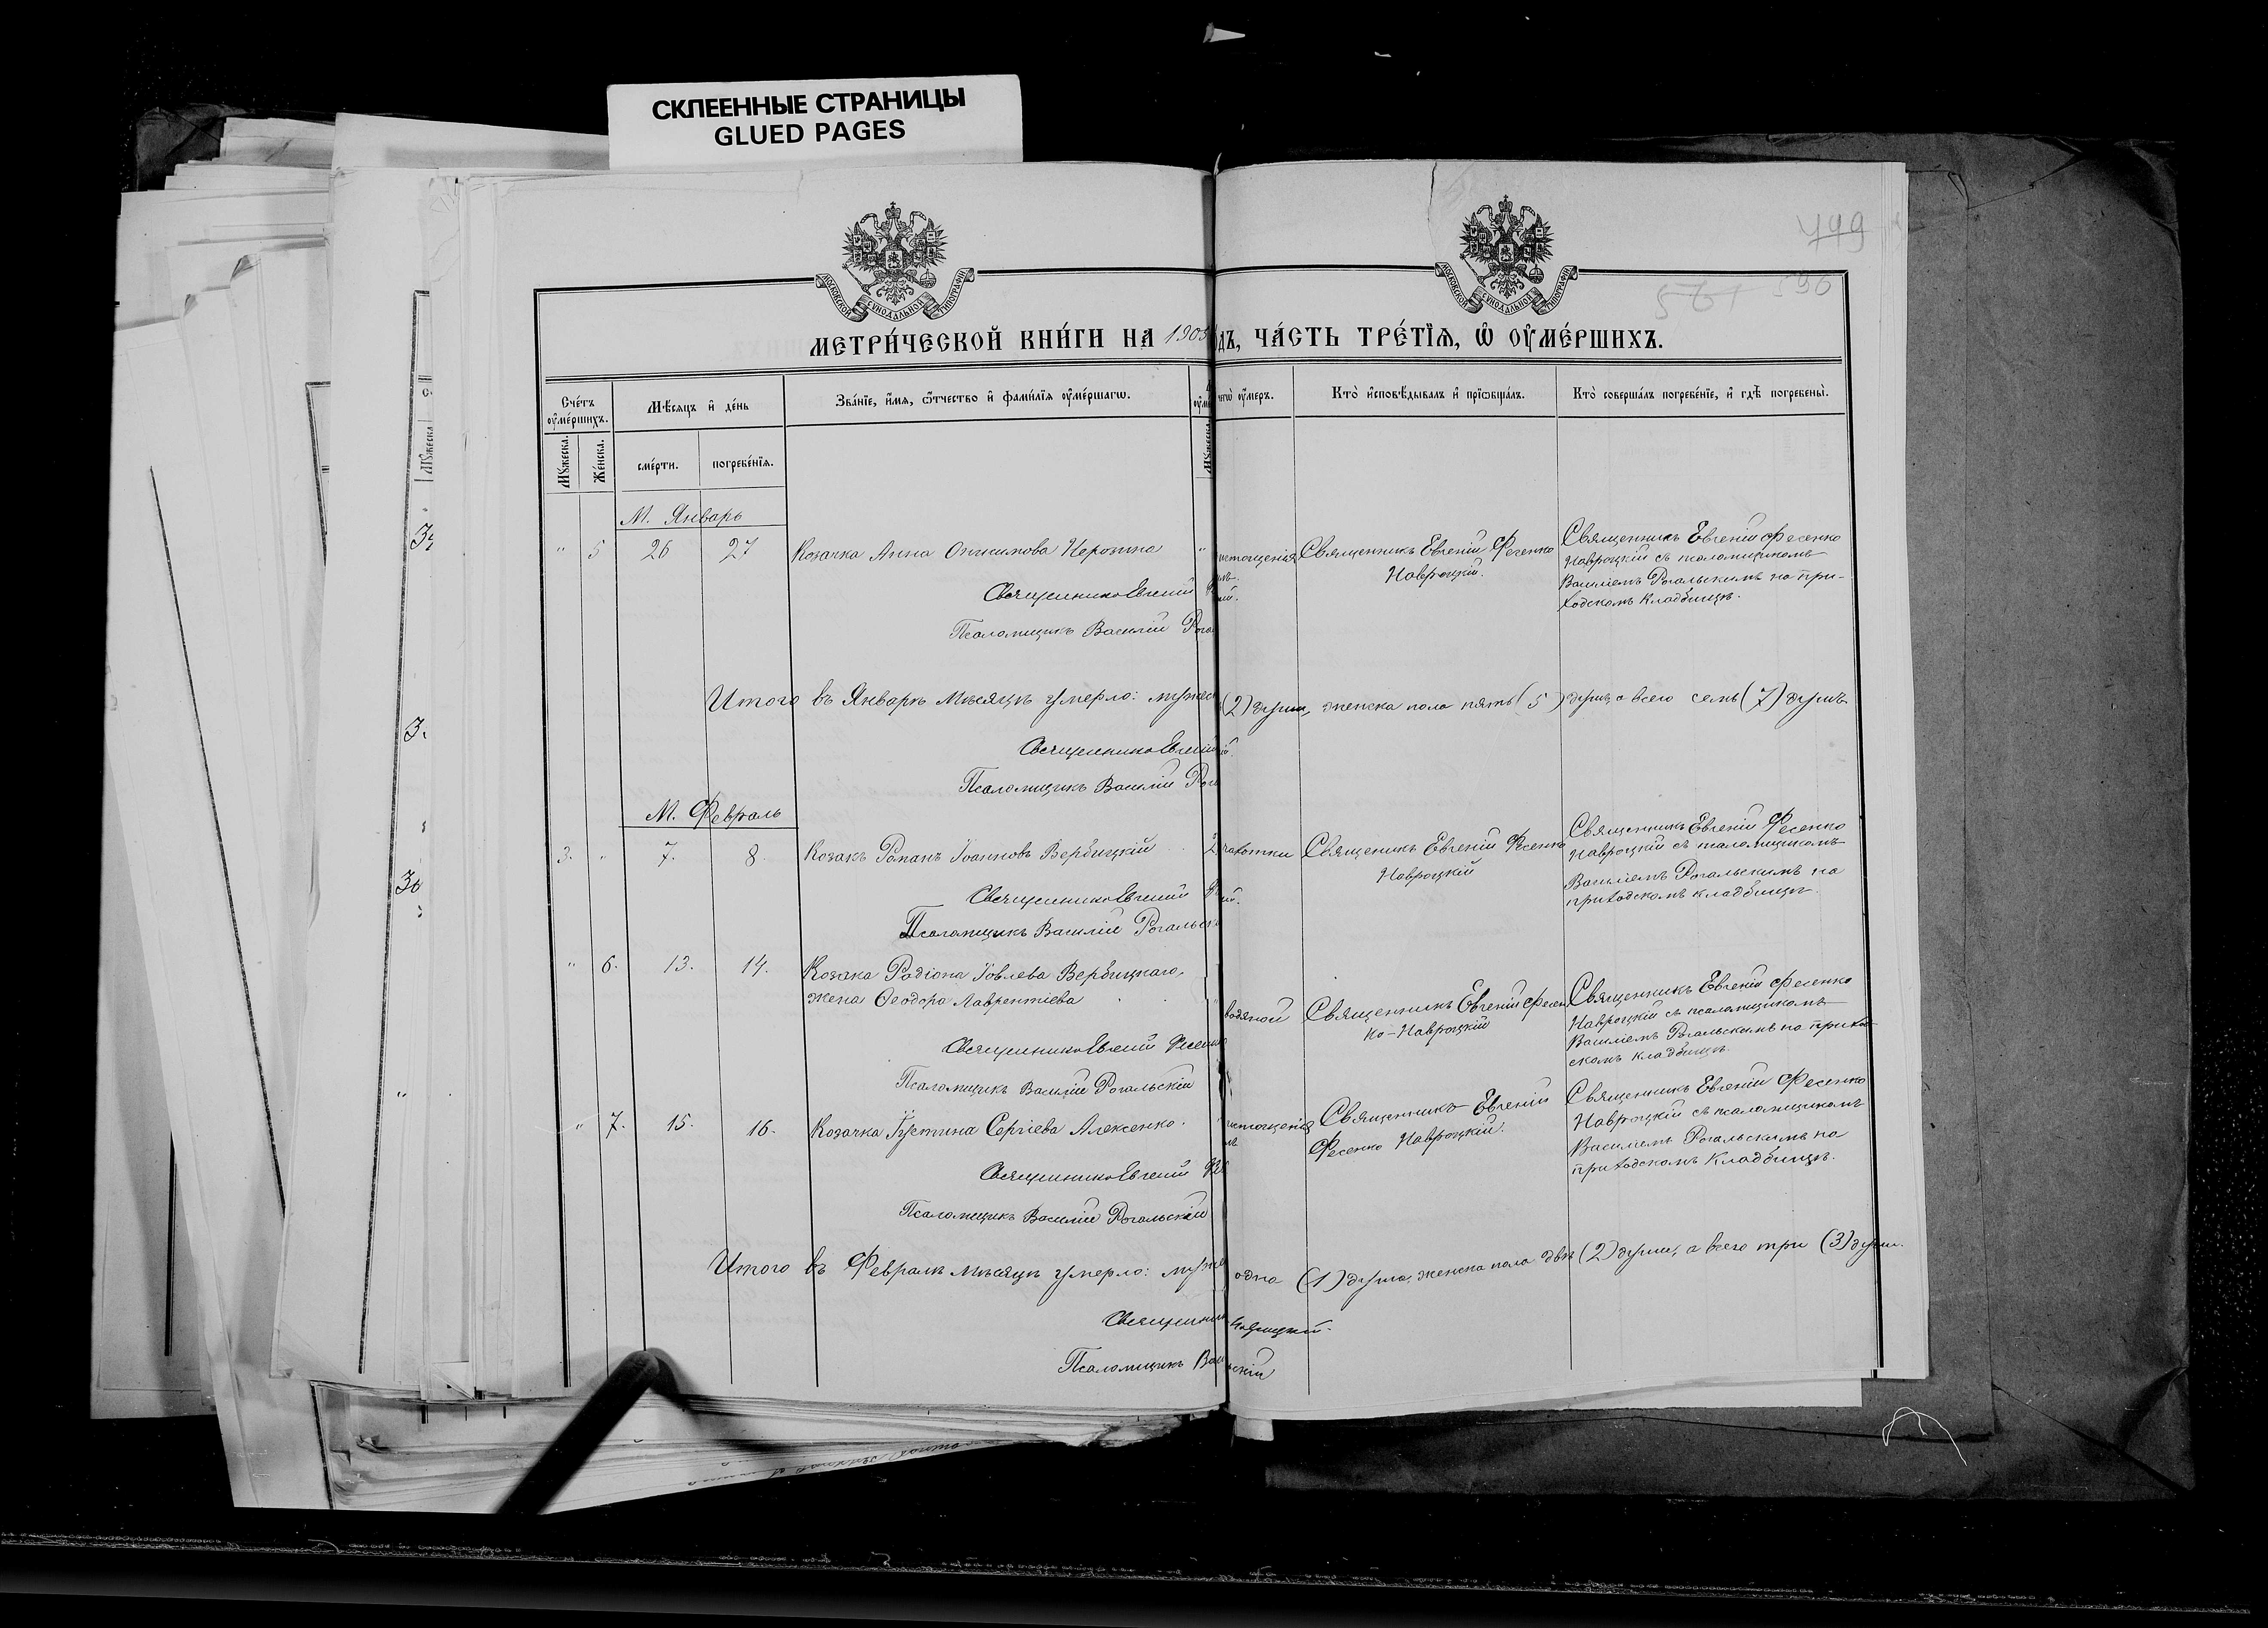 СКЛЕЕННЫЕ СТРАНИЦЫ
GLUED PAGES
499
561 596
МОСКОВСКОЙ СУНОДАЛЬНОЙ ТИПОГРАФІИ
МОСКОВСКОЙ СУНОДАЛЬНОЙ ТИПОГРАФІИ
МЕТРИ́ЧЕСКОЙ КНИ́ГИ НА 1905 ДЪ, ЧА́СТЬ ТРЕ́ТЇѦ, Ѡ ОУМЕ́РШИХЪ.
Сче́тъ оуме́ршихъ.
Мѣ́сяцъ и де́нь
Зва́нїе, и́мѧ, ѻ́тчество и фами́лїѧ оуме́ршагѡ.
чегѡ̀ оу́меръ.
Кто̀ и҆сповѣ́дывалъ и҆ прїѡбща́лъ.
Кто̀ соверша́лъ погребе́нїе, и҆ гдѣ̀ погребены̀.
Мꙋ́жеска.
Же́нска.
сме́рти.
погребе́нїѧ.
Мꙋ́жеска.
М. Январь
" 5 26 27 Козачка Анна Онисимова " истощенія Священникъ Евгеній Фесенко
Навроцкій.
Священникъ Евгеній Фесенко
Навроцкій съ псаломщикомъ
Василіемъ Рогальскимъ на при-
ходскомъ кладбищѣ.
Священникъ Евгеній
Псаломщикъ Василій Рога
Итого въ Январѣ мѣсяцѣ умерло: мужес (2) души, женска пола пять (5) душъ, а всего семь (7) душъ
Священникъ Евгеній
Псаломщикъ Василій Рога
М. Февраль
3. " 7. 8. Козакъ Романъ Іоанновъ Вербицкій 2 чахотки Священикъ Евгеній Фесенко
Навроцкій
Священникъ Евгеній Фесенко
Навроцкій съ псаломщикомъ
Василіемъ Рогальскимъ на
приходскомъ кладбищѣ.
Священникъ Евгеній
Псаломщикъ Василій Рогальск
" 6. 13. 14. Козака Родіона Іовлева Вербицкаго,
жена Ѳеодора Лаврентіева водяной Священникъ Евгеній Фесен
ко-Навроцкій
Священникъ Евгеній Фесенко
Навроцкій съ псаломщикомъ
Василіемъ Рогальскимъ на приход
скомъ кладбищѣ.
Священникъ Евгеній Фесенко
Псаломщикъ Василій Рогальскій
" 7. 15. 16. Козачка Іустина Сергіева Алексенко. " истощенія Священникъ Евгеній
Фесенко Навроцкій.
Священникъ Евгеній Фесенко
Навроцкій съ псаломщикомъ
Василіемъ Рогальскимъ на
приходскомъ кладбищѣ.
Священникъ Евгеній Фес
Псаломщикъ Василій Рогальскій
Итого въ Февралѣ мѣсяцѣ умерло: муже одна (1) душа, женска пола двѣ (2) души, а всего три (3) души.
Священник Навроцкій.
Псаломщикъ Вас ьскій